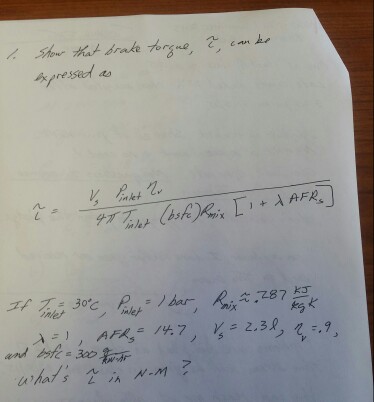 1. Show that brake torque, τ, can be
expressed as
τ = V_s P_inlet η_v / 4π T_inlet (bsfc) R_mix [1 + λ AFR_s]
If T_inlet = 30°C, P_inlet = 1 bar, R_mix ≈ .287 kJ/kg K
λ = 1, AFR_s = 14.7, V_s = 2.3l, η_v = .9,
and bsfc = 300 g/kW-hr
what's τ in N-M ?